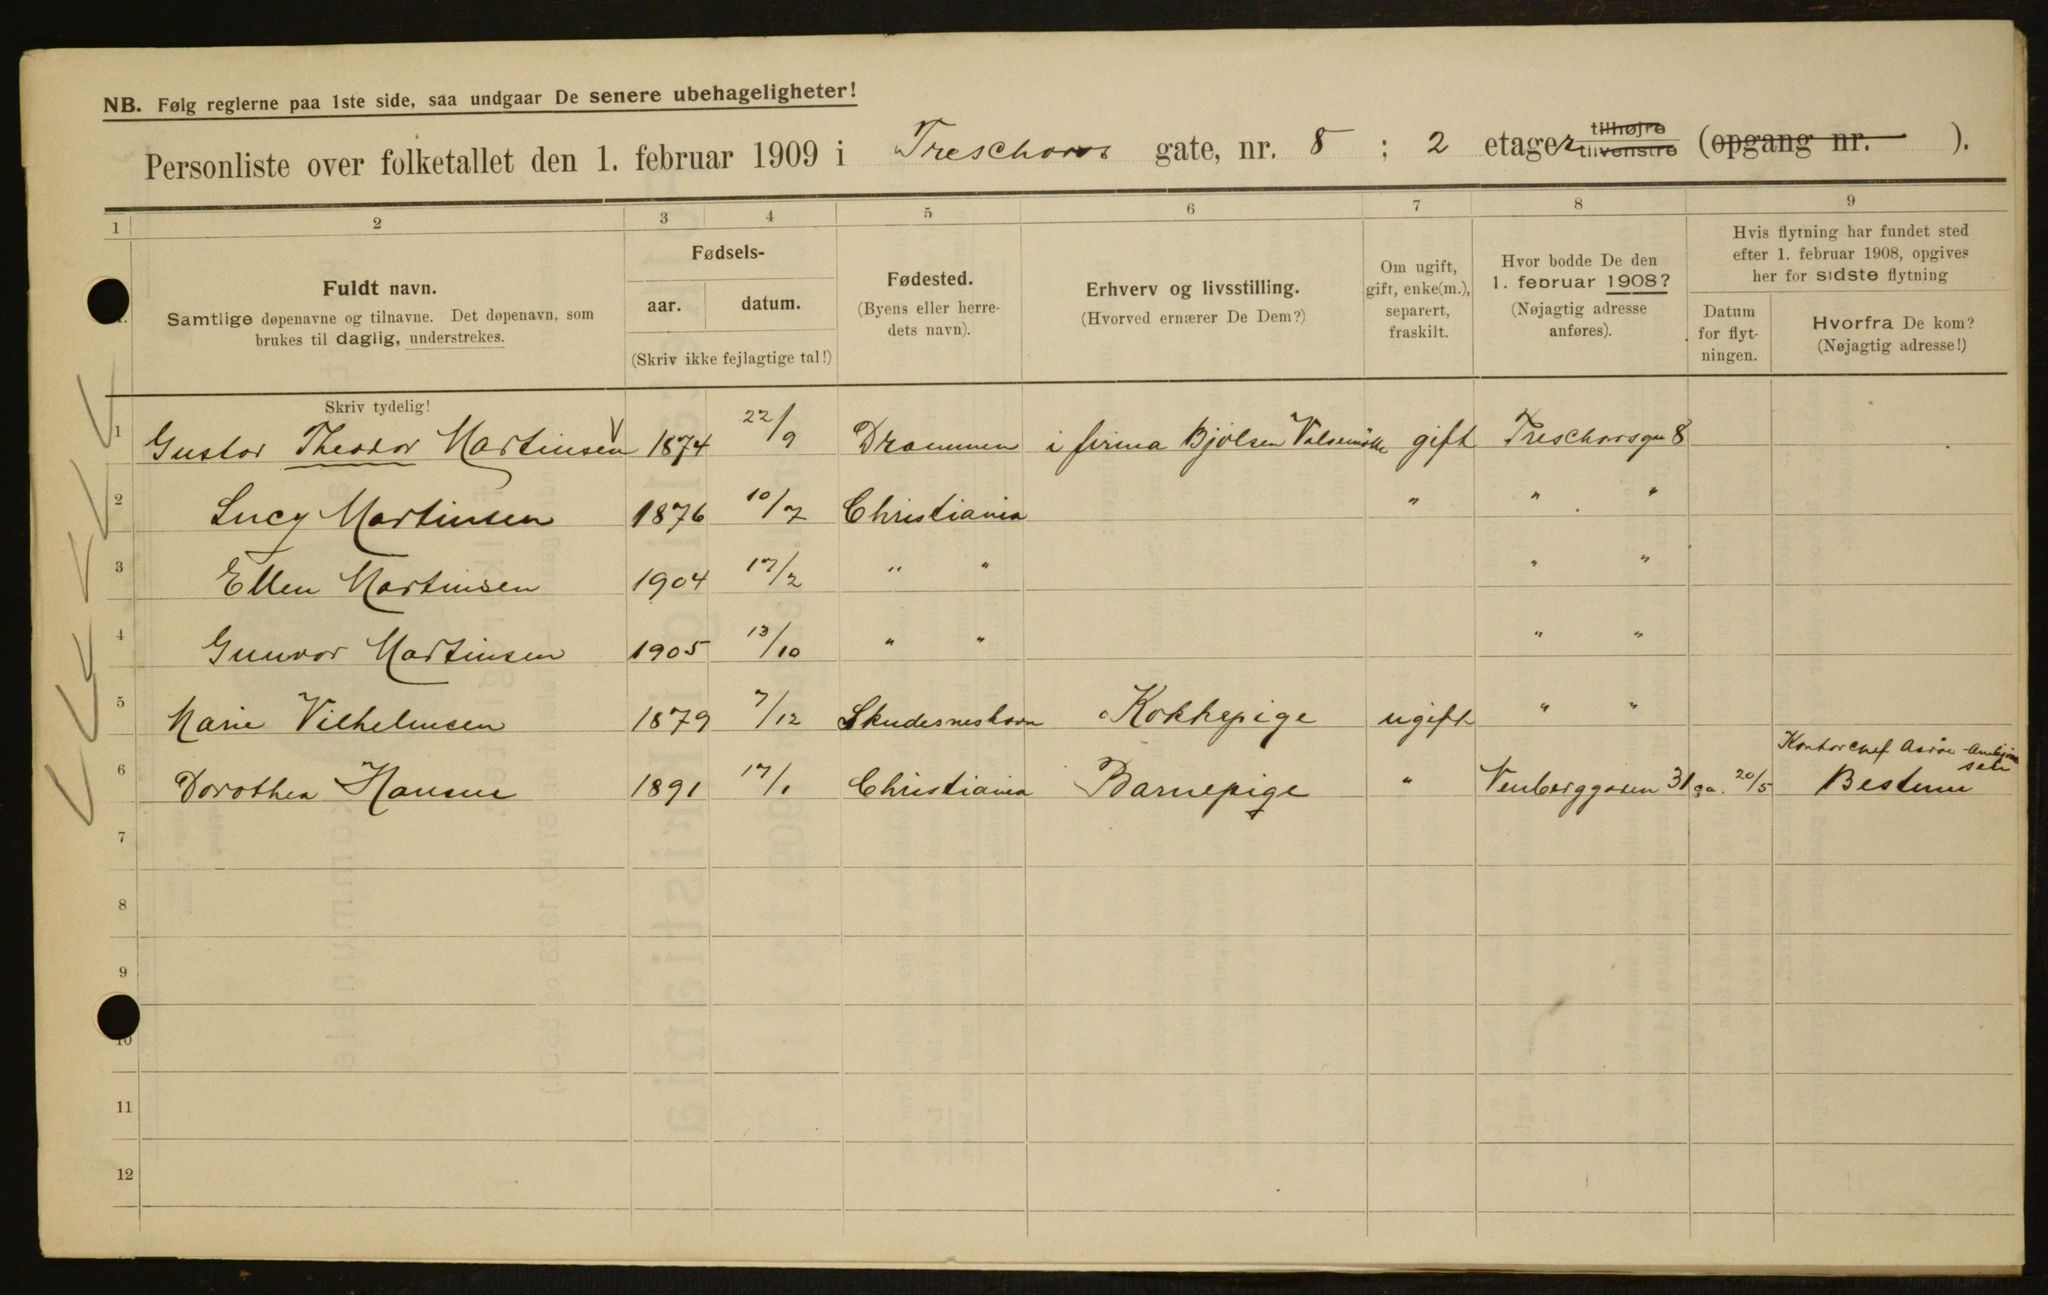 NB. Følg reglerne paa 1ste side, saa undgaar De senere ubehageligheter!
Personliste over folketallet den 1. februar 1909 i Treschows gate, nr. 8 ; 2 etager tilhøjre tilvenstre (opgang nr. ).
1 2 3 4 5 6 7 8 9
Fuldt navn.
Samtlige døpenavne og tilnavne. Det døpenavn, som
brukes til daglig, understrekes.
Skriv tydelig!
Fødsels-
aar. datum.
(Skriv ikke fejlagtige tal!)
Fødested.
(Byens eller herre-
dets navn).
Erhverv og livsstilling.
(Hvorved ernærer De Dem?)
Om ugift,
gift, enke(m.),
separert,
fraskilt.
Hvor bodde De den
1. februar 1908?
(Nøjagtig adresse
anføres).
Hvis flytning har fundet sted
efter 1. februar 1908, opgives
her for sidste flytning
Datum
for flyt-
ningen.
Hvorfra De kom?
(Nøjagtig adresse!)
1 Gustav Theodor Martinsen 1874 22/9 Drammen i firma Bjølsen Valsemølle gift Treschowsgt 8
2 Lucy Martinsen 1876 10/7 Christiania " " "
3 Ellen Martinsen 1904 17/2 " " " "
4 Gunvor Martinsen 1905 13/10 " " " "
5 Marie Vilhelmsen 1879 7/12 Skudesneshavn Kokkepige ugift " "
Kontorchef
6 Dorothea Hansen 1891 17/1 Christiania Barnepige " 31 ca. 20/5 Bestum
7
8
9
10
11
12